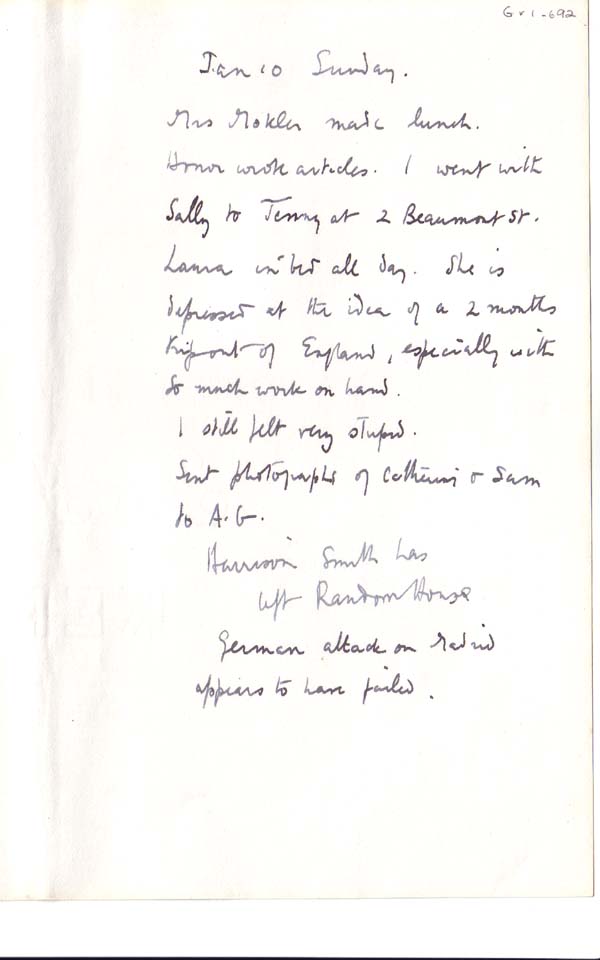 GV1-692
Jan 10 Sunday.
Mrs Mokler made lunch.
Honor wrote articles. I went with
Sally to Jenny at 2 Beaumont St.
Laura in bed all day. She is
depressed at the idea of a 2 months
trip out of England, especially with
so much work on hand.
I still felt very stupid.
Sent photographs of Catherine & Sam
to A.G.
Harrison Smith has
left Random House
German attack on Madrid
appears to have failed.